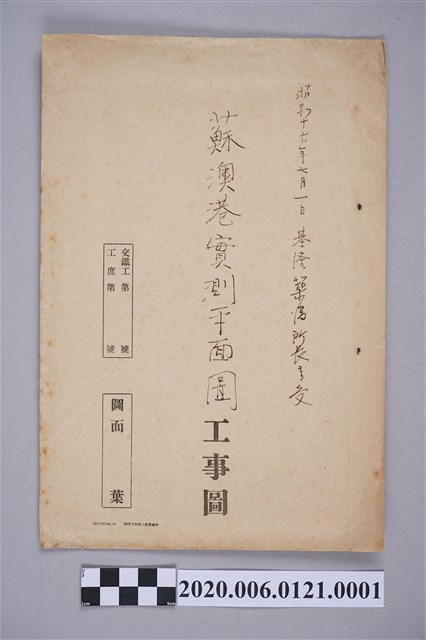 昭和十六年七月一日 基隆築港所長ヨリ受
蘇澳港實測平面圖
工事圖
交鐵工第 號
工庶第 號
圖面 葉
2020.006.0121.0001